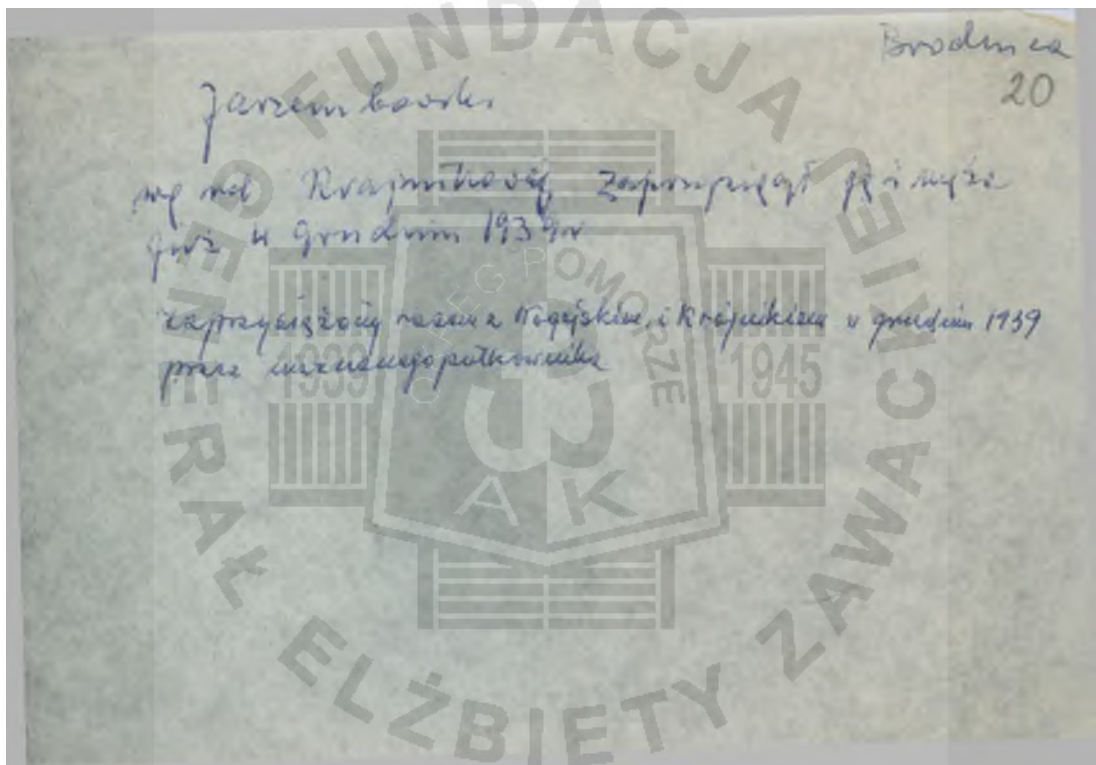 Brodnica
20
Jarzembowski
wg rel Krajnikowej zaprzysiągł ją i męża
już w grudniu 1939 r
zaprzysiężony razem z Nogajskim i Krajnikiem w grudniu 1939
przez nieznanego pułkownika
FUNDACJA
GENERAŁ ELŻBIETY ZAWACKIEJ
OKRĘG POMORZE
1939 1945
AK